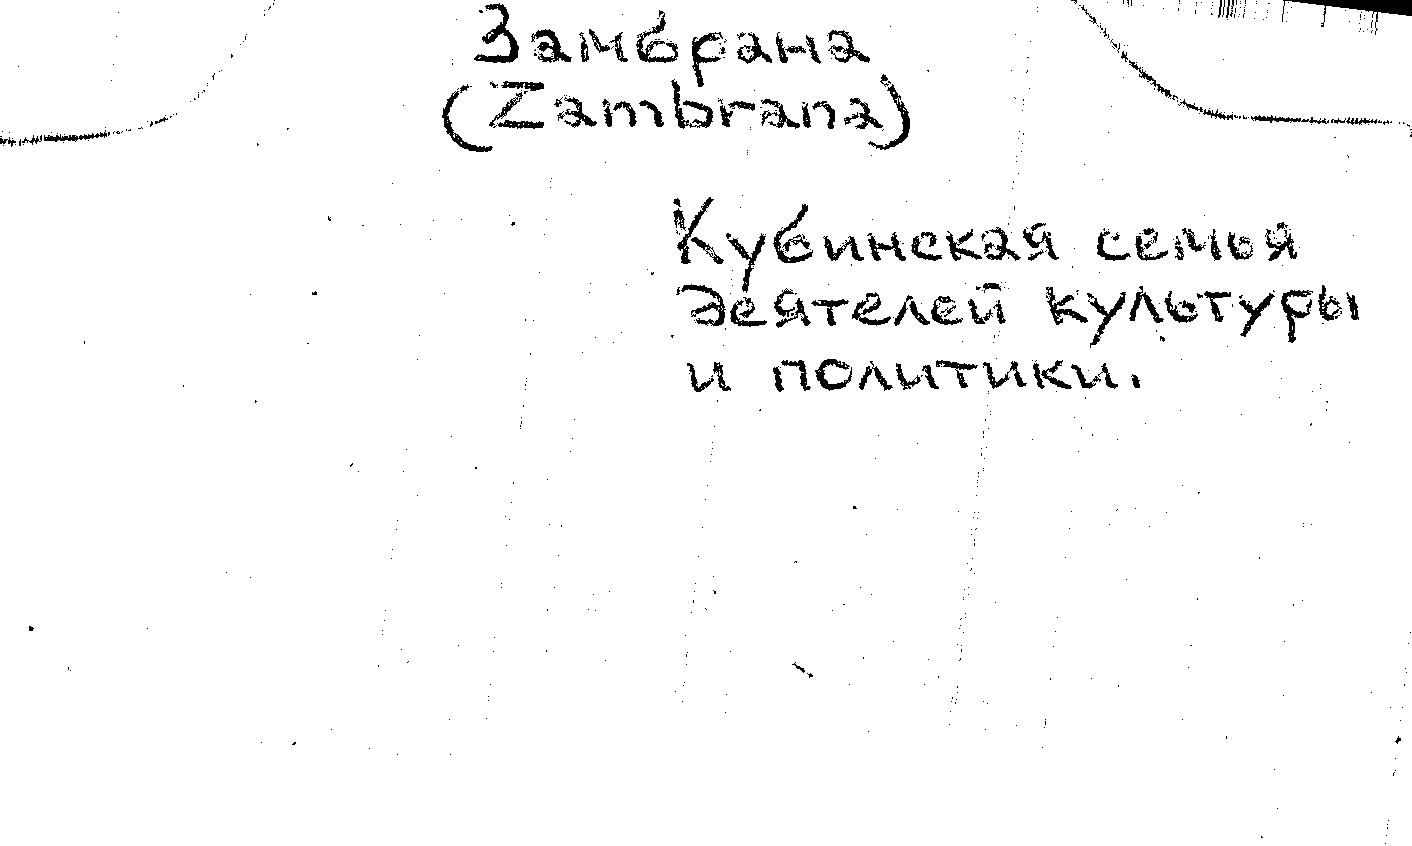 Замбрана
(Zambrana)
Кубинская семья
деятелей культуры
и политики.